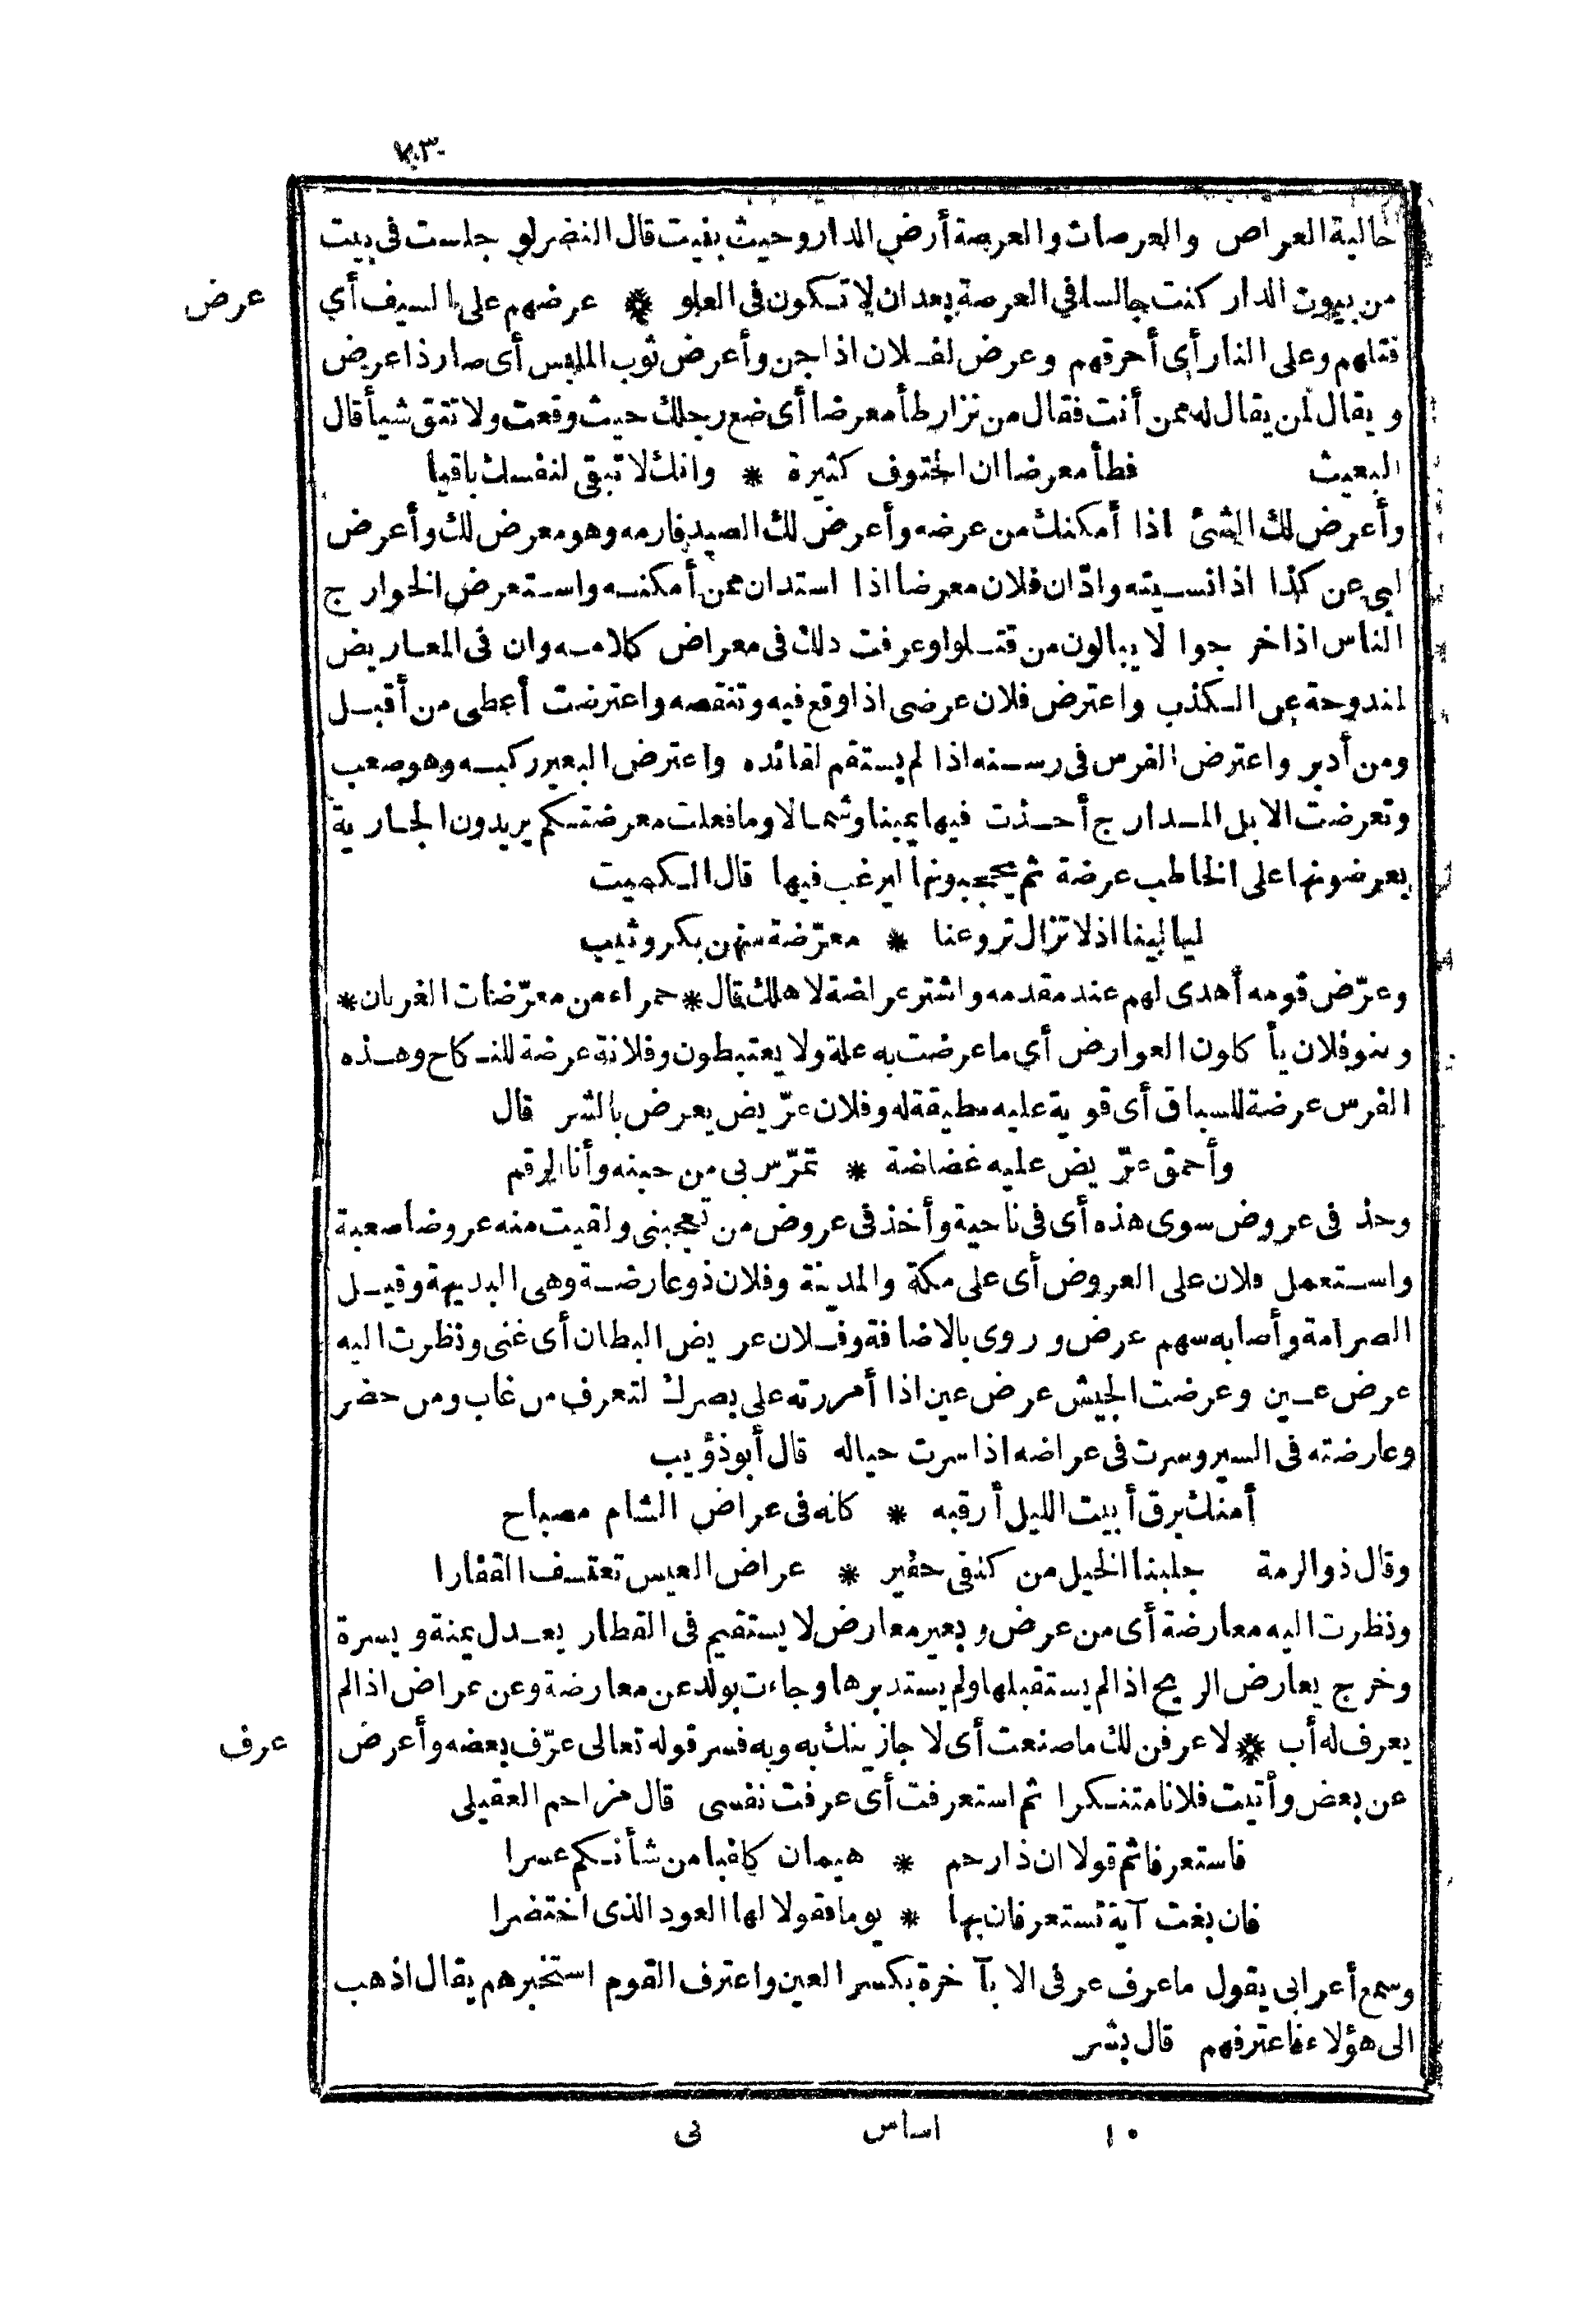 ٧٣
خالية العراص والعرصات والعرصة أرض الدار وحيث بنيت قال النضر لو جلست فى بيت
من بيوت الدار كنت جالسا في العرصة بعد ان لا تكون فى العلو * عرضهم على السيف أي
عرض
قتلهم وعلى النار أي أحرقهم وعرض لفلان اذا جن وأعرض ثوب الملبس أى صار ذا عرض
ويقال لمن يقال له ممن أنت فقال من نزار طأ معرضا أى ضع رجلك حيث وقعت ولا تتق شيأ قال
البعيث فطأ معرضا ان الحتوف كثيرة * وانك لا تبقى لنفسك باقيا
وأعرض لك الشئ اذا أمكنك من عرضه وأعرض لك الصيد فارمه وهو معرض لك وأعرض
لبى عن كذا اذا نسيته وادّان فلان معرضا اذا استدان ممن أمكنه واستعرض الخوارج
الناس اذا خرجوا لا يبالون من قتلوا وعرفت ذلك فى معراض كلامه وان فى المعاريض
لمندوحة عن الكذب واعترض فلان عرضى اذا وقع فيه وتنقصه واعترضت أعطى من أقبل
ومن أدبر واعترض الفرس فى رسنه اذا لم يستقم لقائده واعترض البعير ركبه وهو صعب
وتعرضت الابل المدارج أخذت فيها يمينا وشمالا وما فعلت معرضتكم يريدون الجارية
يعرضونها على الخاطب عرضة ثم يحجبونها ليرغب فيها قال الكميت
ليالينا اذ لا تزال تروعنا * معرّضة منهن بكر وثيب
وعرّض قومه أهدى لهم عند مقدمه واشتر عراضة لاهلك قال * حمراء من معرّضات الغربان *
وبنو فلان يأكلون العوارض أي ما عرضت به علة ولا يعتبطون وفلانة عرضة للنكاح وهذه
الفرس عرضة للسباق أى قوية عليه مطيقة له وفلان عرّيض يعرض بالشر قال
وأحمق عرّيض عليه غضاضة * تمرّس بى من حينه وأنا الرقم
وخذ فى عروض سوى هذه أى فى ناحية وأخذ فى عروض من تعجبنى ولقيت منه عروضا صعبة
واستعمل فلان على العروض أى على مكة والمدينة وفلان ذو عارضة وهى البديهة وقيل
الصرامة وأصابه سهم عرض وروى بالاضافة وفلان عريض البطان أى غنى ونظرت اليه
عرض عين وعرضت الجيش عرض عين اذا أمررته على بصرك لتعرف من غاب ومن حضر
وعارضته فى السير وسرت فى عراضه اذا سرت حياله قال أبو ذؤيب
أمنك برق أبيت الليل أرقبه * كانه فى عراض الشام مصباح
وقال ذو الرمة جلبنا الخيل من كنفى حفير * عراض العيس تعتسف القفارا
ونظرت اليه معارضة أى من عرض وبعير معارض لا يستقيم فى القطار يعدل يمنة ويسرة
وخرج يعارض الريح اذا لم يستقبلها ولم يستدبرها وجاءت بولد عن معارضة وعن عراض اذا لم
يعرف له أب * لاعرفن لك ما صنعت أى لا جازينك به وبه فسر قوله تعالى عرّف بعضه وأعرض
عرف
عن بعض وأتيت فلانا متنكرا ثم استعرفت أى عرفت نفسى قال مزاحم العقيلى
فاستعرفا ثم قولا ان ذا رحم * هيمان كلفنا من شأنكم عسرا
فان بغت آية تستعرفان بها * يوما فقولا لها العود الذى اختضرا
وسمع أعرابى يقول ما عرف عرفى الا بآخرة بكسر العين واعترف القوم استخبرهم يقال اذهب
الى هؤلاء فاعترفهم قال بشر
١٠ اساس نى